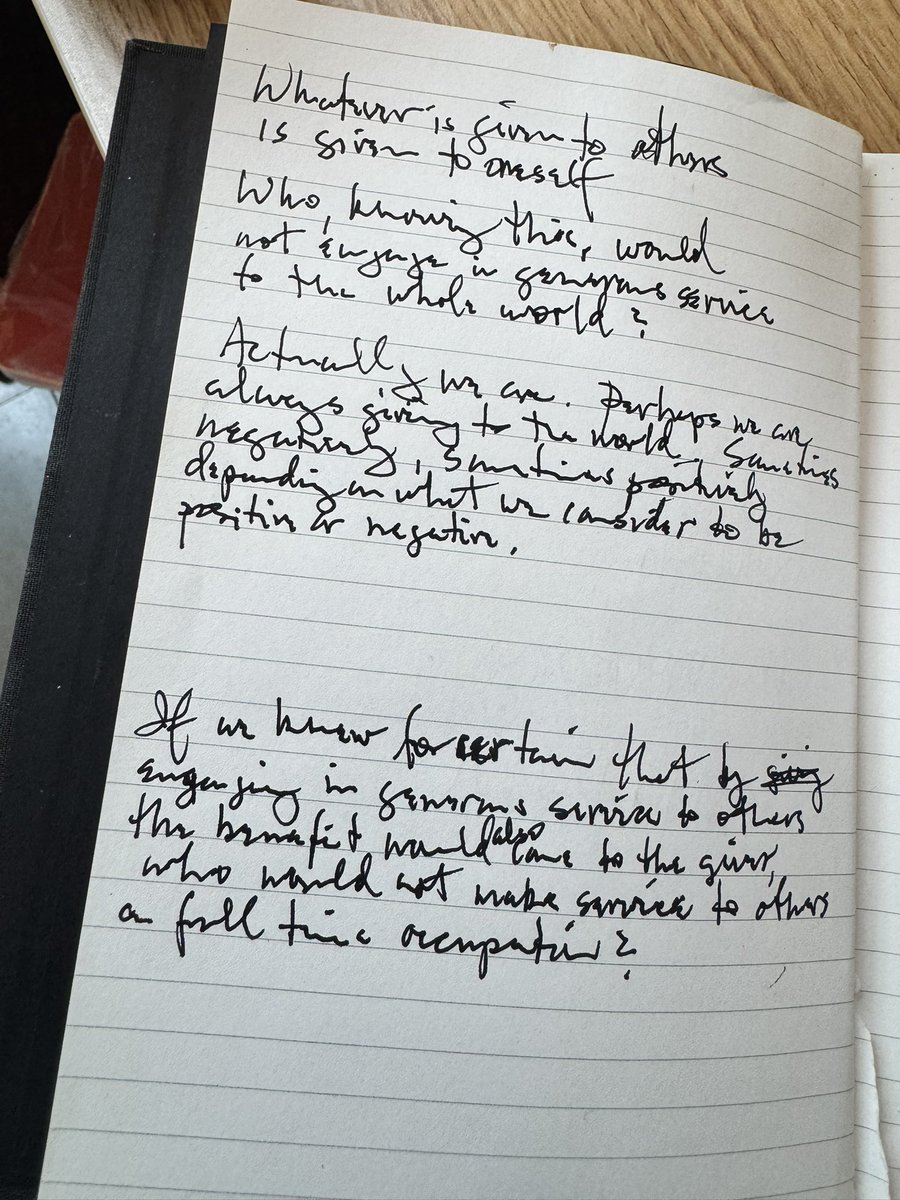 Whatever is given to others
is given to oneself
Who, knowing this, would
not engage in generous service
to the whole world?
Actually we are. Perhaps we are
always giving to the world. Sometimes
negatively, sometimes positively
depending on what we consider to be
positive or negative.
If we knew for certain that by giving
engaging in generous service to others
the benefit would also come to the giver,
who would not make service to others
a full time occupation?